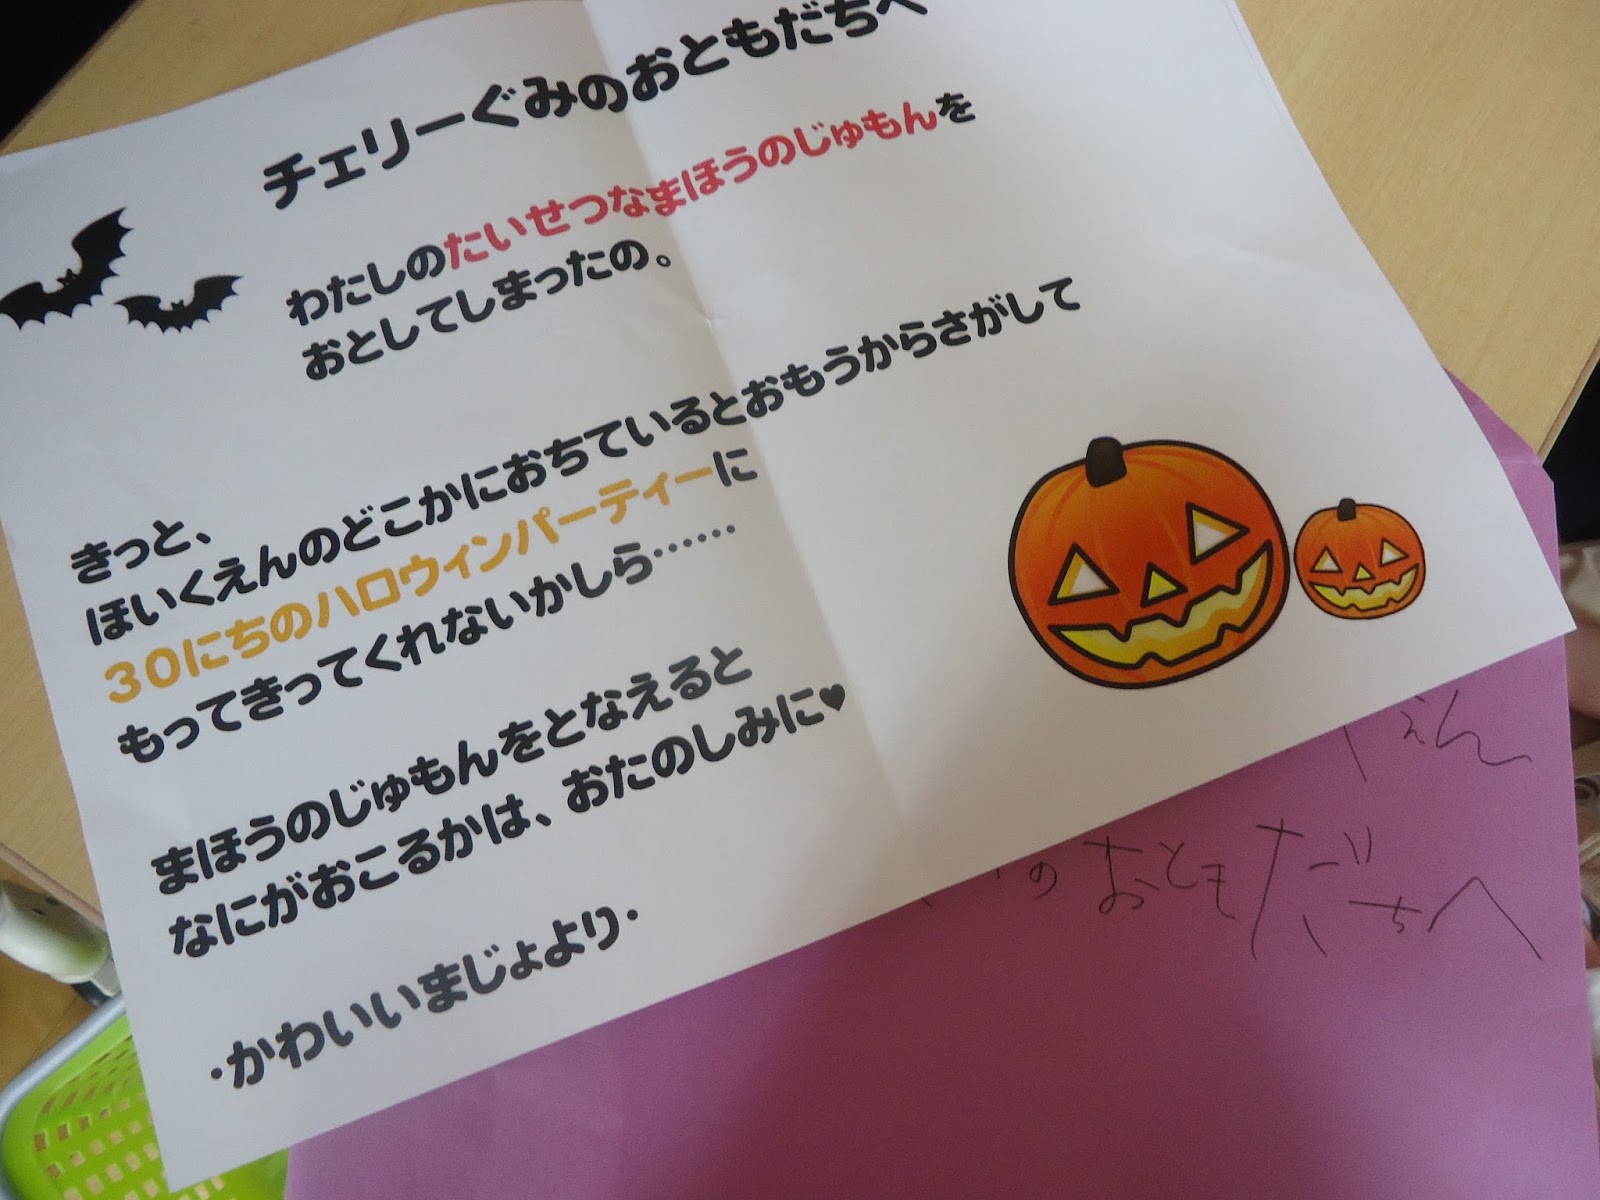 チェリーぐみのおともだちへ
わたしのたいせつなまほうのじゅもんを
おとしてしまったの。
きっと、
ほいくえんのどこかにおちているとおもうからさがして
30にちのハロウィンパーティーに
もってきってくれないかしら……
まほうのじゅもんをとなえると
なにがおこるかは、おたのしみに♥
・かわいいまじょより・
えん
のおともだちへ